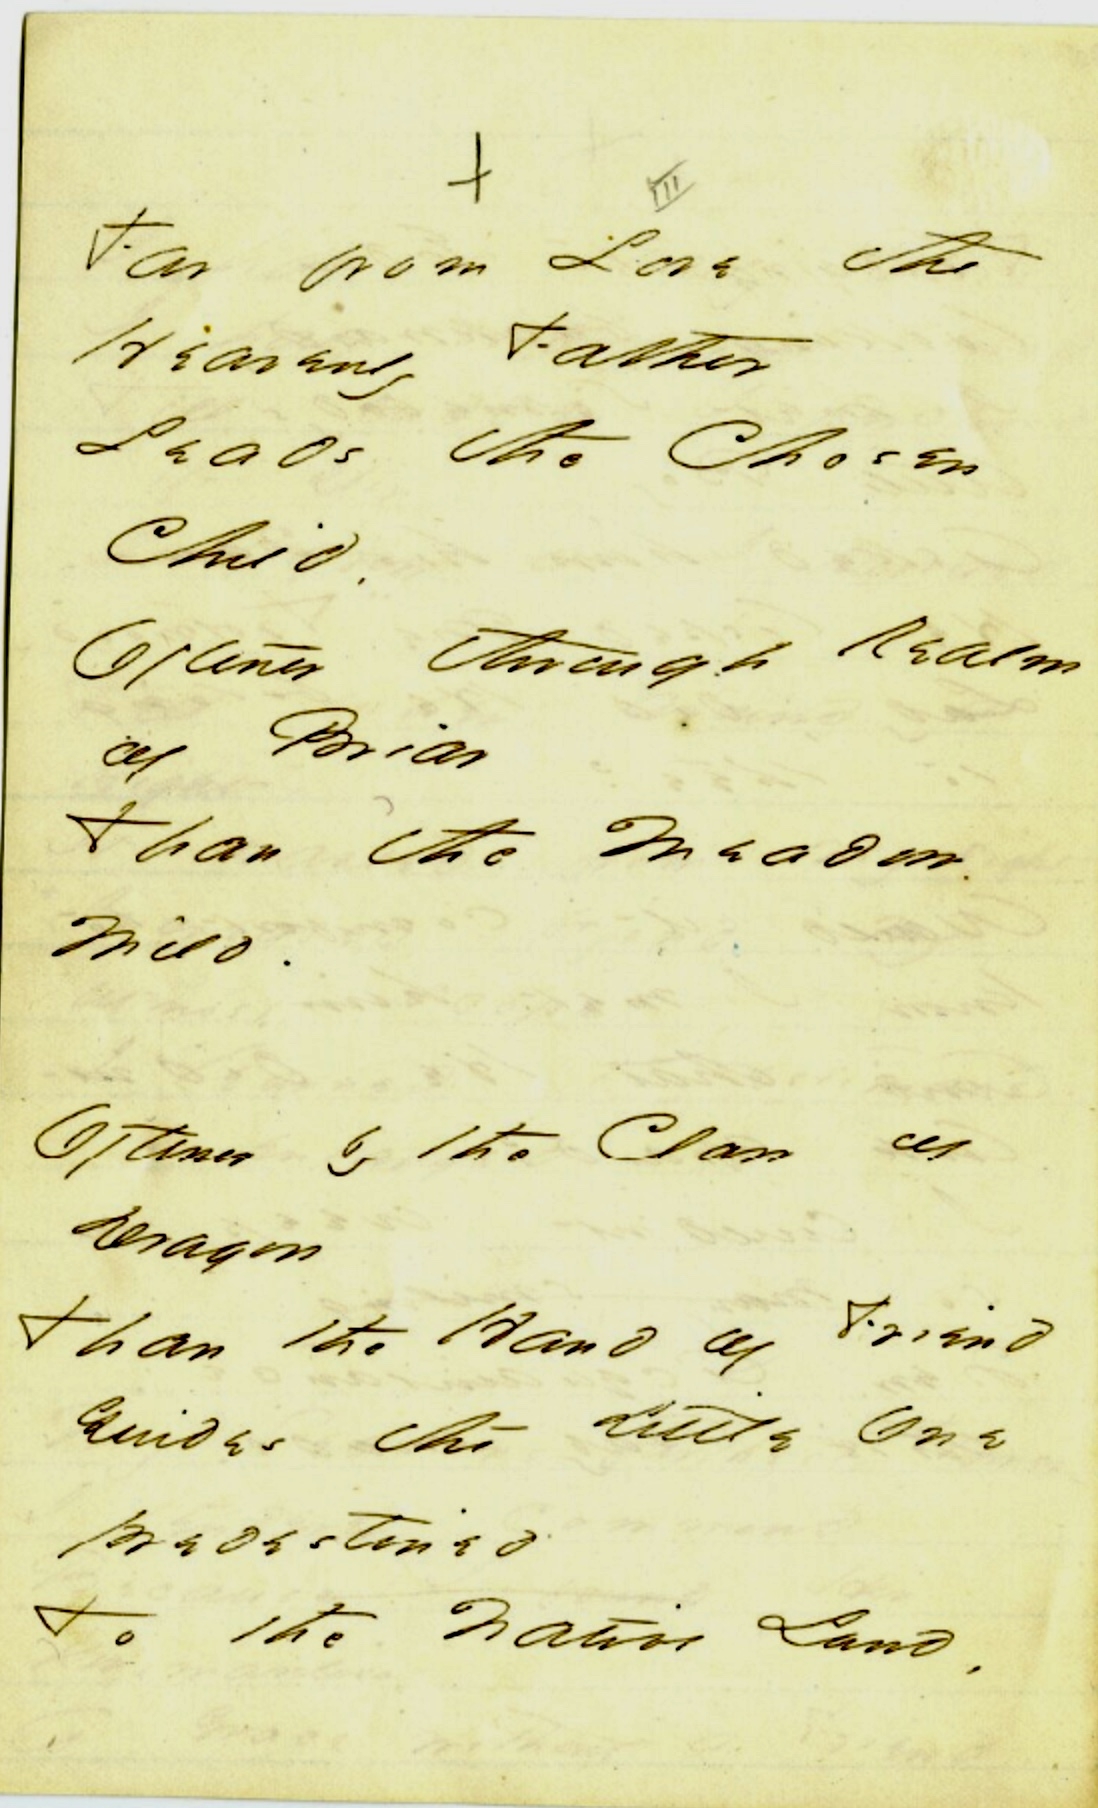 III
Far from Love the
Heavenly Father
Leads the Chosen
Child,
Oftener through Realm
of Briar
Than the Meadow
Mild.
Oftener by the Claw of
Dragon
Than the Hand of Friend
Guides the Little One
predestined
To the Native Land.